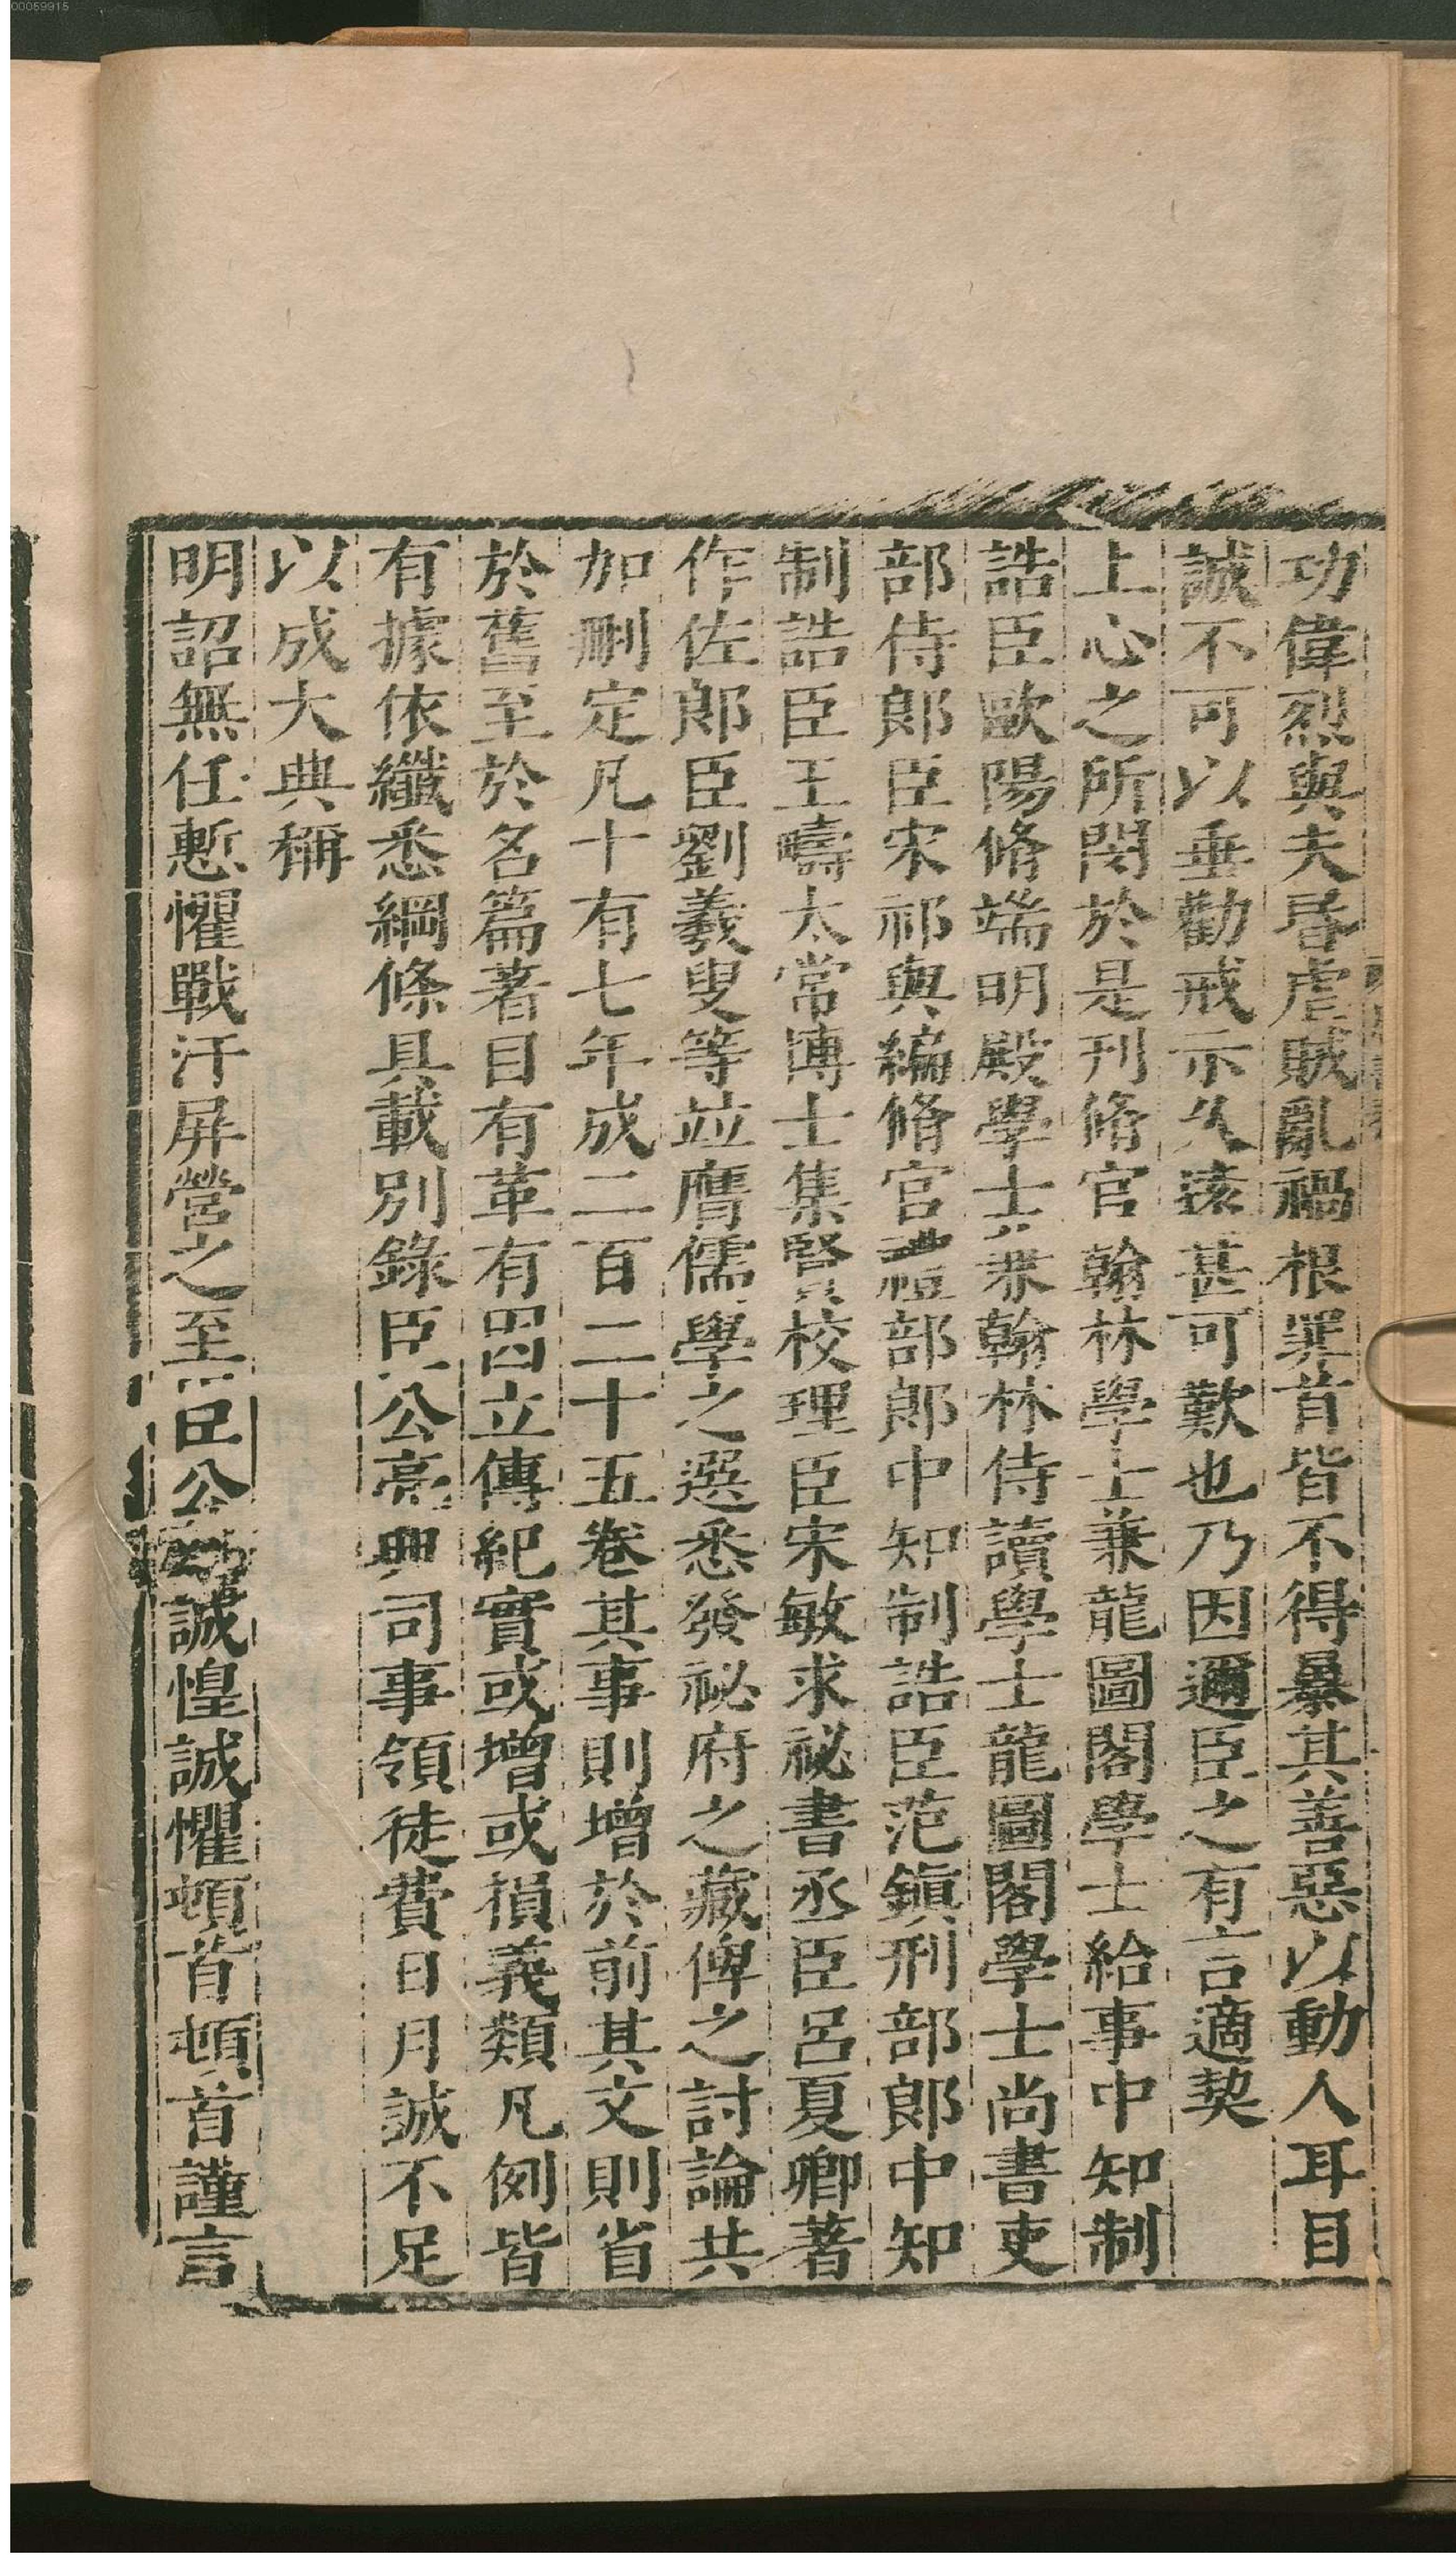 00059915
功偉烈與夫昬虐賊亂禍根罪首皆不得暴其善惡以動人耳目
誠不可以垂勸戒示久遠甚可歎也乃因邇臣之有言適契
上心之所閔於是刊脩官翰林學士兼龍圖閣學士給事中知制
誥臣歐陽脩端明殿學士兼翰林侍讀學士龍圖閣學士尚書吏
部侍郎臣宋祁與編脩官禮部郎中知制誥臣范鎮刑部郎中知
制誥臣王疇太常博士集賢校理臣宋敏求祕書丞臣呂夏卿著
作佐郎臣劉羲叟等竝膺儒學之選悉發祕府之藏俾之討論共
加刪定凡十有七年成二百二十五卷其事則增於前其文則省
於舊至於名篇著目有革有因立傳紀實或增或損義類凡例皆
有據依纖悉綱條具載別錄臣公亮典司事領徒費日月誠不足
以成大典稱
明詔無任慙懼戰汗屏營之至臣公誠惶誠懼頓首頓首謹言